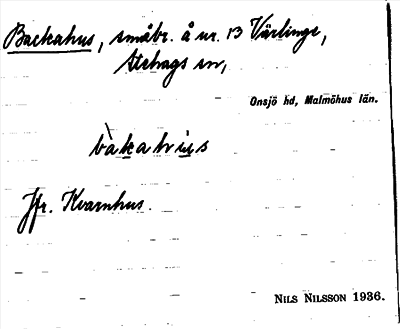 Backahus, småbr. å nr. 13 Värlinge,
Stehags sn,
Onsjö hd, Malmöhus län.
bàkahu̇s
Jfr. Kvarnhus.
NILS NILSSON 1936.